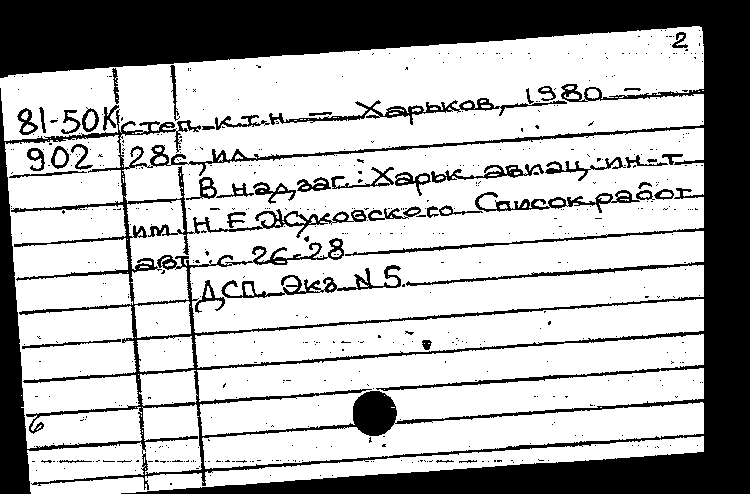 2
81-50К степ. к.т.н. — Харьков, 1980 —
902 28с., ил.
В надзаг.: Харьк. авиац. ин-т
им. Н. Е. Жуковского. Список работ
авт.: с. 26-28
ДСП. Экз. N 5.
6